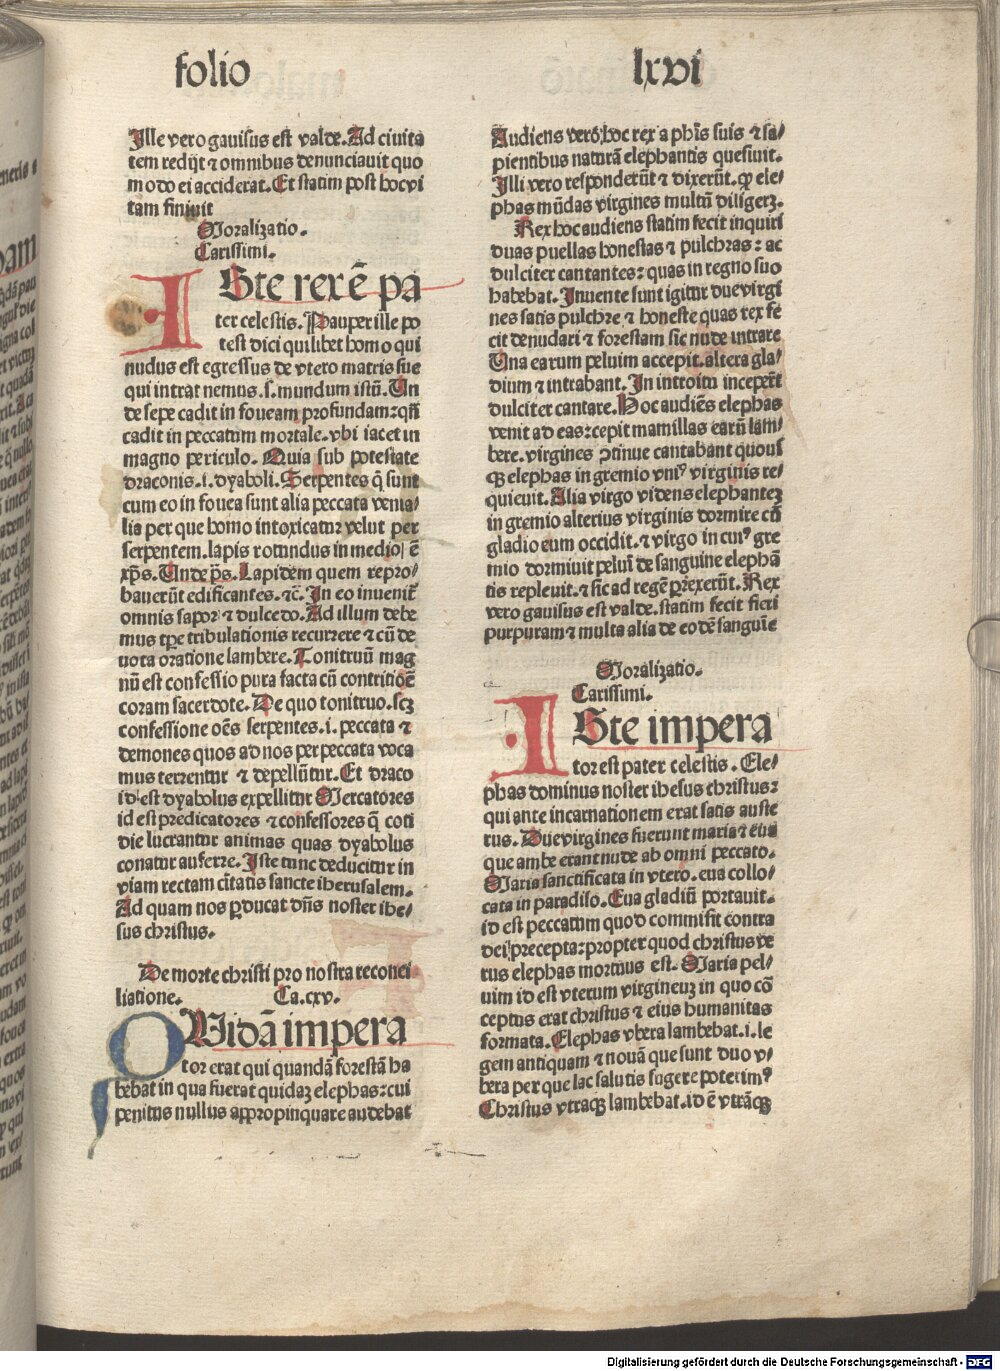 folio
lxvi
Ille vero gauisus est valde. Ad ciuita
tem redijt ⁊ omnibus denunciauit quo
modo ei acciderat. Et statim post hoc vi
tam finiuit
Moralizatio.
Carissimi.
ISte rex ē pa
ter celestis. Pauper ille po
test dici quilibet homo qui
nudus est egressus de vtero matris sue
qui intrat nemus .s. mundum istū. Un
de sepe cadit in foueam profundam: qñ
cadit in peccatum mortale. vbi iacet in
magno periculo. Quia sub potestate
draconis .i. dyaboli. Serpentes q̄ sunt
cum eo in fouea sunt alia peccata venia/
lia per que homo intoxicatur velut per
serpentem. lapis rotundus in medio/ ē
xp̄s. Unde p̄s. Lapidem quem repro/
bauerūt edificantes. ⁊c̄. In eo inuenit̄
omnis sapor ⁊ dulcedo. Ad illum debe
mus tp̄e tribulationis recurrere ⁊ cū de
uota oratione lambere. Tonitruū mag
nū est confessio pura facta cū contritiōe
coram sacerdote. De quo tonitruo. scꝫ
confessione oēs serpentes .i. peccata ⁊
demones quos ad nos per peccata voca
mus terrentur ⁊ depellūtur. Et draco
id est dyabolus expellitur Mercatores
id est predicatores ⁊ confessores q̄ coti
die lucrantur animas quas dyabolus
conatur auferre. Iste tunc deducitur in
viam rectam ciuitatis sancte iherusalem.
Ad quam nos ꝑducat dūs noster ihe/
sus christus.
De morte christi pro nostra reconci
liatione. Ca. cxv.
QUidā impera
tor erat qui quandā forestā ha
bebat in qua fuerat quidaꝫ elephas: cui
penitus nullus appropinquare audebat
Audiens vero/ hoc rex a phīs suis ⁊ sa/
pientibus naturā elephantis quesiuit.
Illi vero responderūt ⁊ dixerūt. ꝙ ele/
phas mūdas virgines multū diligerꝫ.
Rex hoc audiens statim fecit inquiri
duas puellas honestas ⁊ pulchras: ac
dulciter cantantes: quas in regno suo
habebat. Inuente sunt igitur due virgi
nes satis pulchre ⁊ honeste quas rex fe
cit denudari ⁊ forestam sic nude intrare
Una earum peluim accepit. altera gla/
dium ⁊ intrabant. In introitu inceper̄t
dulciter cantare. Hoc audiēs elephas
venit ad eas: cepit mamillas earū lam/
bere. virgines ꝯtinue cantabant quous
qꝫ elephas in gremio vniꝰ virginis re/
quieuit. Alia virgo videns elephanteꝫ
in gremio alterius virginis dormire cū
gladio eum occidit. ⁊ virgo in cuiꝰ gre
mio dormiuit peluī de sanguine elephā
tis repleuit. ⁊ sic ad regē ꝑrexerūt. Rex
vero gauisus est valde. statim fecit fieri
purpuram ⁊ multa alia de eodē sanguīe
Moralizatio.
Carissimi.
ISte impera
tor est pater celestis. Ele/
phas dominus noster ihesus christus:
qui ante incarnationem erat satis auste
rus. Due virgines fuerunt maria ⁊ eua
que ambe erant nude ab omni peccato.
Maria sanctificata in vtero. eua collo/
cata in paradiso. Eua gladiū portauit.
id est peccatum quod commisit contra
dei/ precepta: propter quod christus ve
rus elephas mortuus est. Maria pel/
uim id est vterum virgineuꝫ in quo cō
ceptus erat christus ⁊ eius humanitas
formata. Elephas vbera lambebat .i. le
gem antiquam ⁊ nouā que sunt duo v/
bera per que lac salutis sugere poterimꝰ
Christus vtraqꝫ lambebat. id ē vtrāqꝫ
Digitalisierung gefördert durch die Deutsche Forschungsgemeinschaft - DFG